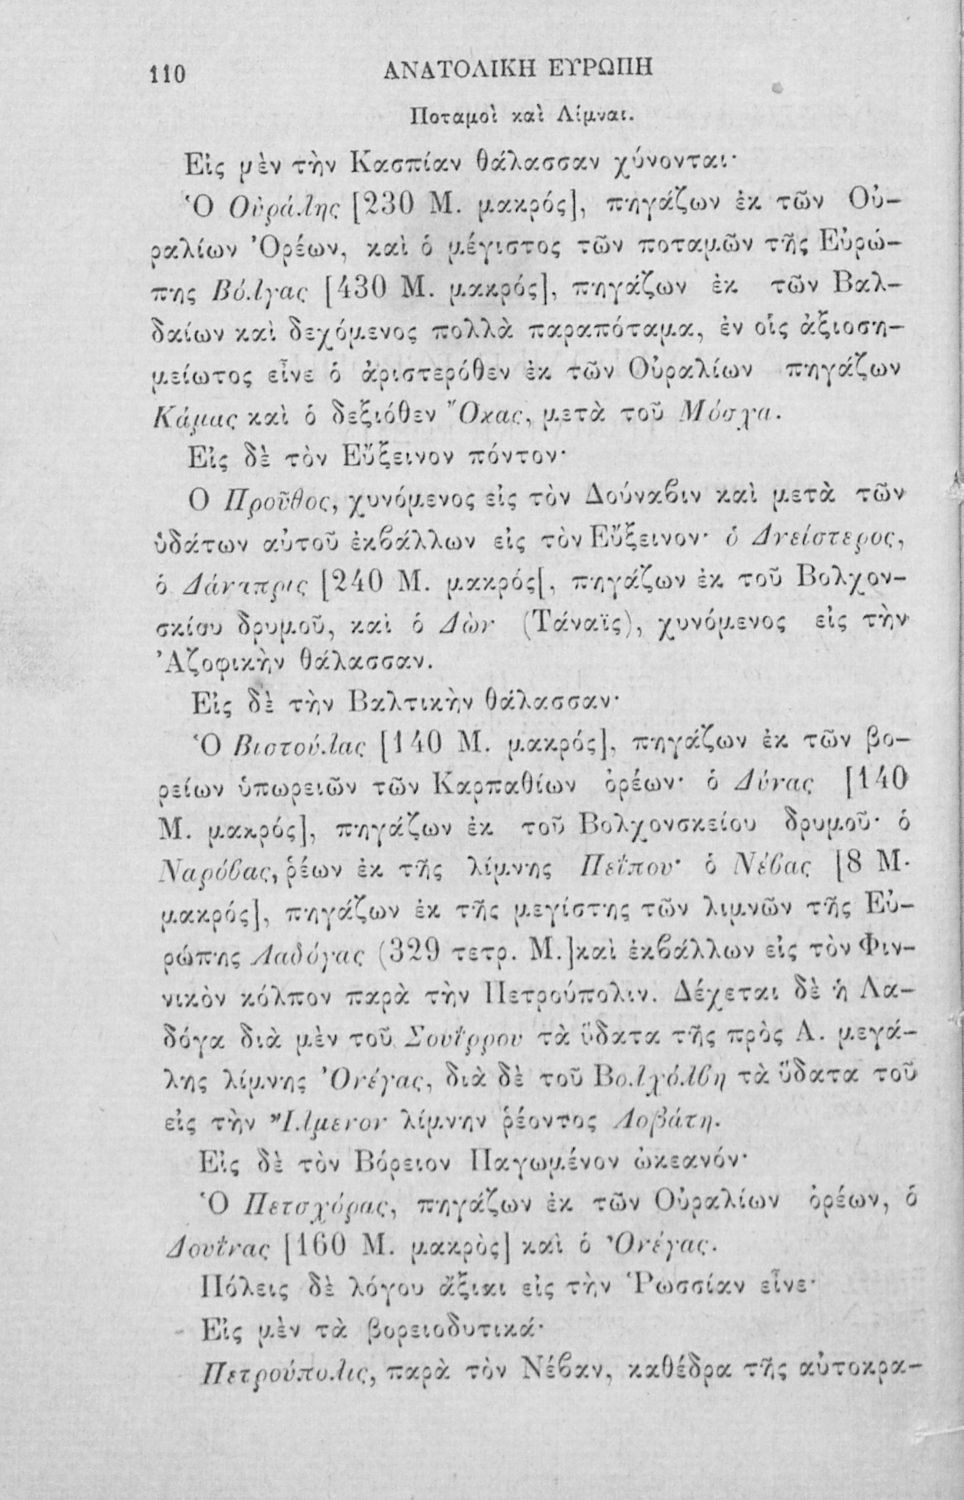 110 ΑΝΑΤΟΛΙΚΗ ΕΥΡΩΠΗ
Ποταμοὶ καὶ Λίμναι.
Εἰς μὲν τὴν Κασπίαν θάλασσαν χύνονται·
Ὁ Οὐράλης [230 Μ. μακρός], πηγάζων ἐκ τῶν Οὐ-
ραλίων Ὀρέων, καὶ ὁ μέγιστος τῶν ποταμῶν τῆς Εὐρώ-
πης Βόλγας [430 Μ. μακρός], πηγάζων ἐκ τῶν Βαλ-
δαίων καὶ δεχόμενος πολλὰ παραπόταμα, ἐν οἷς ἀξιοση-
μείωτος εἶνε ὁ ἀριστερόθεν ἐκ τῶν Οὐραλίων πηγάζων
Κάμας καὶ ὁ δεξιόθεν Ὄκας, μετὰ τοῦ Μόσχα.
Εἰς δὲ τὸν Εὔξεινον πόντον·
Ο Προῦθος, χυνόμενος εἰς τὸν Δούναϐιν καὶ μετὰ τῶν
ὑδάτων αὐτοῦ ἐκϐάλλων εἰς τὸν Εὔξεινον· ὁ Δνείστερος,
ὁ Δάναπρις [240 Μ. μακρός[, πηγάζων ἐκ τοῦ Βολχον-
σκίου δρυμοῦ, καὶ ὁ Δὼν (Τάναϊς), χυνόμενος εἰς τὴν
Ἀζοφικὴν θάλασσαν.
Εἰς δὲ τὴν Βαλτικὴν θάλασσαν·
Ὁ Βιστούλας [140 Μ. μακρός], πηγάζων ἐκ τῶν βο-
ρείων ὑπωρειῶν τῶν Καρπαθίων ὀρέων· ὁ Δύνας [140
Μ. μακρός], πηγάζων ἐκ τοῦ Βολχονσκείου δρυμοῦ· ὁ
Ναρόϐας, ῥέων ἐκ τῆς λίμνης Πεΐπου· ὁ Νέϐας [8 Μ.
μακρός], πηγάζων ἐκ τῆς μεγίστης τῶν λιμνῶν τῆς Εὐ-
ρώπης Λαδόγας (329 τετρ. Μ.] καὶ ἐκϐάλλων εἰς τὸν Φιν-
νικὸν κόλπον παρὰ τὴν Πετρούπολιν. Δέχεται δὲ ἡ Λα-
δόγα διὰ μὲν τοῦ Σουΐρρου τὰ ὕδατα τῆς πρὸς Α. μεγά-
λης λίμνης Ὀνέγας, διὰ δὲ τοῦ Βολχόλϐη τὰ ὕδατα τοῦ
εἰς τὴν Ἴλμενον λίμνην ῥέοντος Λοβάτη.
Εἰς δὲ τὸν Βόρειον Παγωμένον ὠκεανόν·
Ὁ Πετσχόρας, πηγάζων ἐκ τῶν Οὐραλίων ὀρέων, ὁ
Δουΐνας [160 Μ. μακρὸς] καὶ ὁ Ὀνέγας.
Πόλεις δὲ λόγου ἄξιαι εἰς τὴν Ῥωσσίαν εἶνε·
Εἰς μὲν τὰ βορειοδυτικά·
Πετρούπολις, παρὰ τὸν Νέϐαν, καθέδρα τῆς αὐτοκρα-